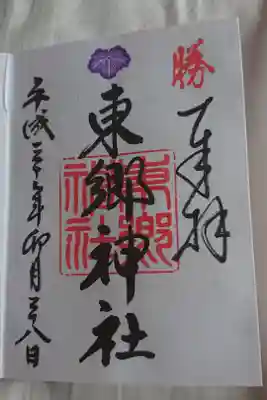 勝
奉拝
東郷神社
東郷
神社
平成三十年卯月二八日